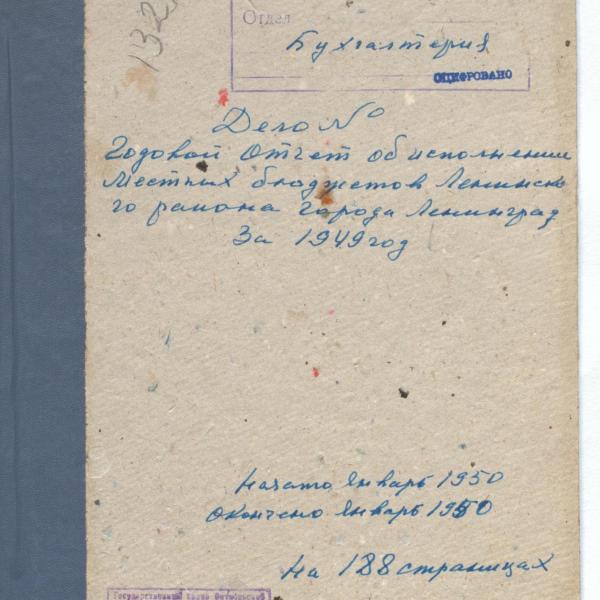 132
Отдел
Бухгалтерия
ОЦИФРОВАНО
Дело №
Годовой Отчет об исполнении
Местных бюджетов Ленинско
го района города Ленинград
За 1949 год
Начато Январь 1950
Окончено Январь 1950
На 188 страницах
Государственный Архив Октябрьской